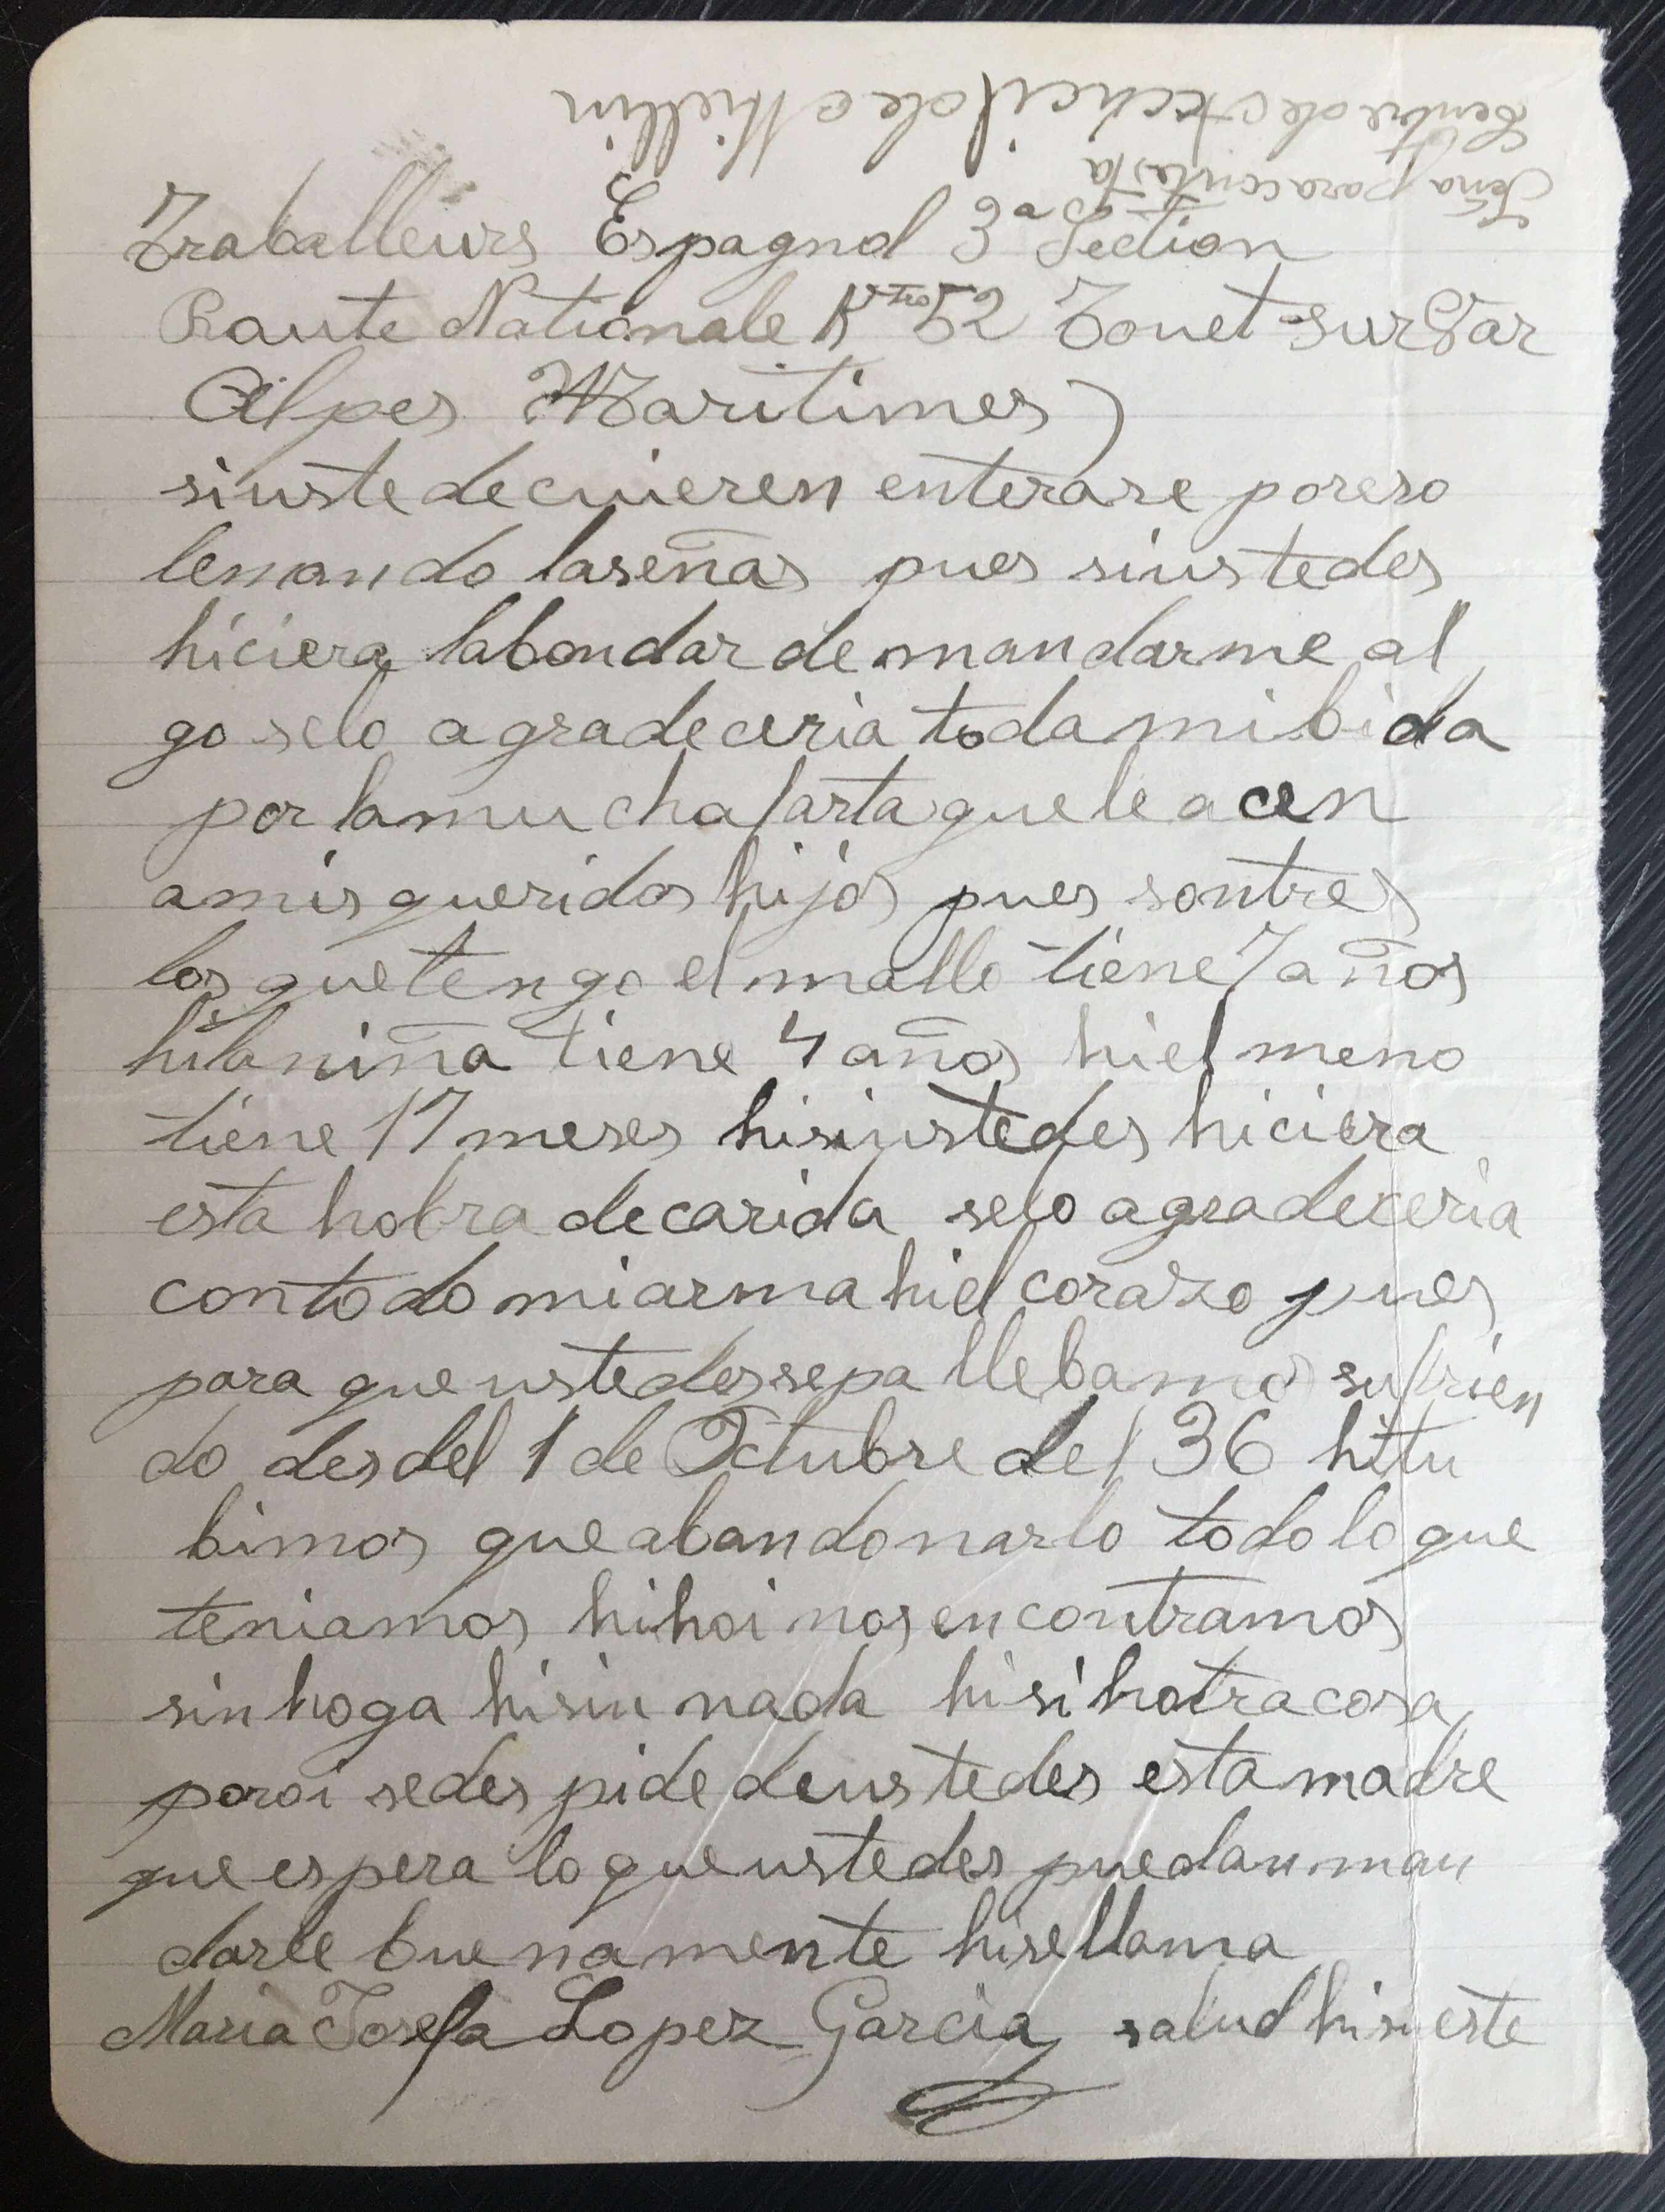 Seña para contesta
Centre de Acheil de Miellin
Traballeurs Espagnol 3ª Section
Raute Nationale K^tros 52 Touet-sur Var
Alpes Maritimes)
siustedecuieren enterarse poreso
lemando laseñas pues siustedes
hiciera labondar de mandarme al
go selo agradeceria todamibida
por lamucha farta quele acen
amis queridos hijos pues sontres
los quetengo el mallo tiene 7 años
hilaniña tiene 4 años hiel meno
tiene 17 meses hisiustedes hiciera
esta hobra decarida selo agradeceria
contodo miarma hiel corazo pues
para que ustedes sepa llebamos sufrien
do desdel 1 de Octubre del 36 hitu
bimos que abandonarlo todo lo que
teniamos hihoi nos encontramos
sin hoga hisin nada hisi hotracosa
poroi sedes pide deustedes esta madre
que espera lo que ustedes puedan man
darle buenamente hisellama
Maria Josefa Lopez Garcia salud hisueste